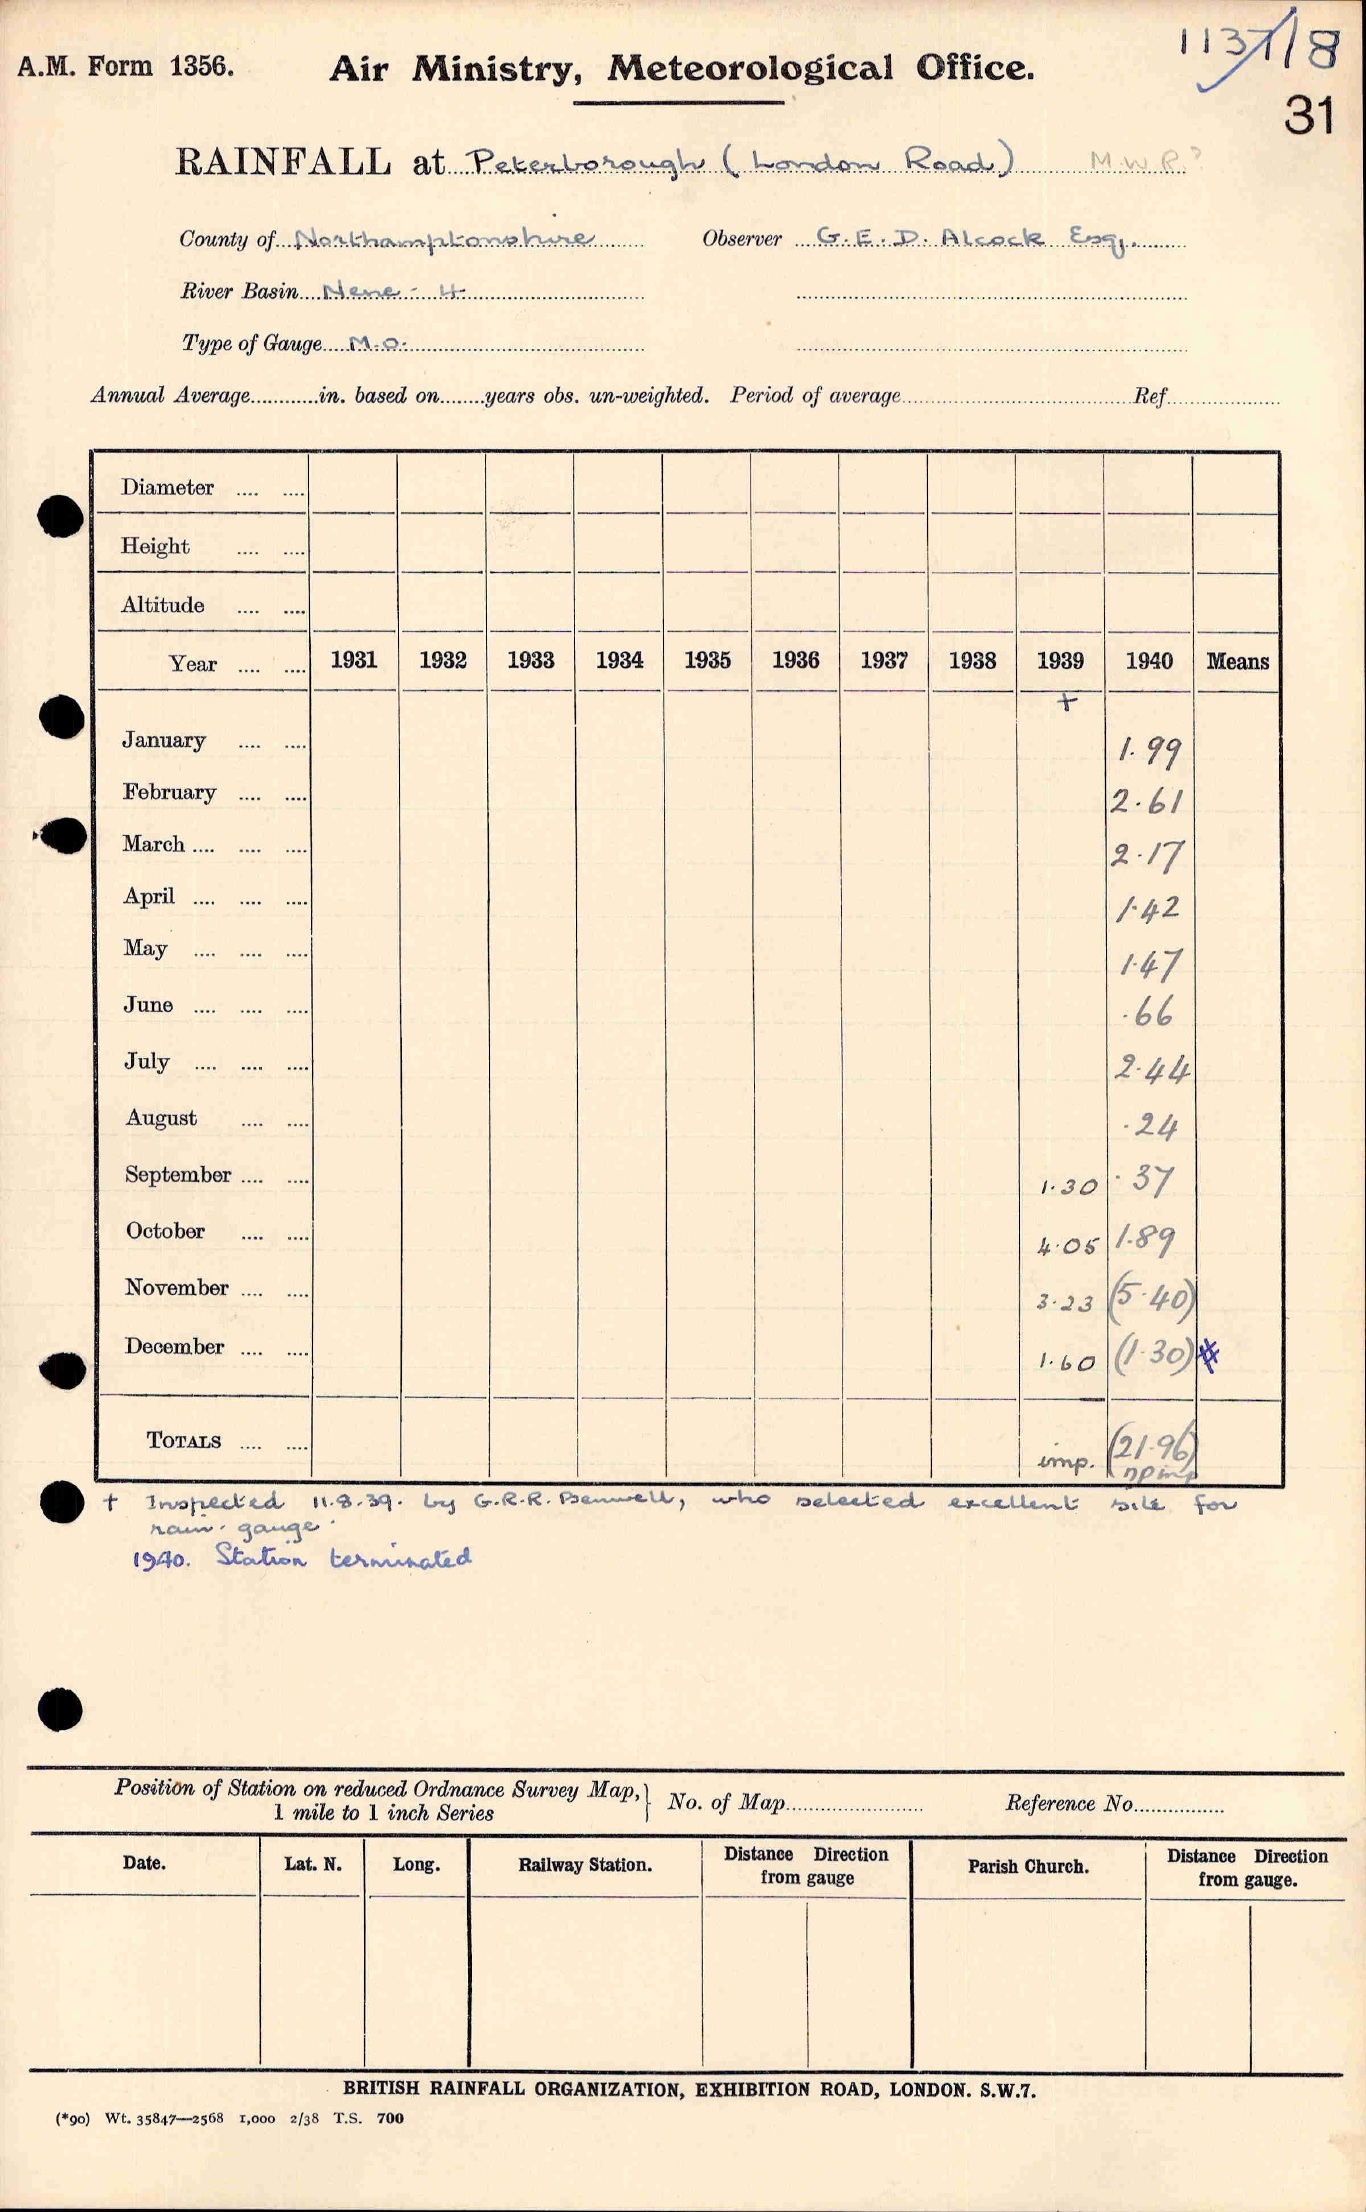 1137/8
A.M. Form 1356.
Air Ministry, Meteorological Office.
31
RAINFALL at Peterborough (London Road) M.W.R?
County of Northamptonshire Observer G.E.D. Alcock Esq.
River Basin Nene - 4
Type of Gauge M.O.
Annual Average in. based on years obs. un-weighted. Period of average Ref
Diameter
Height
Altitude
Year 1931 1932 1933 1934 1935 1936 1937 1938 1939 1940 Means
+
January 1.99
February 2.61
March 2.17
April 1.42
May 1.47
June .66
July 2.44
August .24
September 1.30 .37
October 4.05 1.89
November 3.23 (5.40)
December 1.60 (1.30) #
TOTALS imp. (21.96)
+ Inspected 11.8.39. by G.R.R. Benwell, who selected excellent site for
rain-gauge.
1940. Station terminated
Position of Station on reduced Ordnance Survey Map, } No. of Map Reference No.
1 mile to 1 inch Series
Date. Lat. N. Long. Railway Station. Distance Direction from gauge Parish Church. Distance Direction from gauge.
BRITISH RAINFALL ORGANIZATION, EXHIBITION ROAD, LONDON. S.W.7.
(*90) Wt. 35847—2568 1,000 2/38 T.S. 700